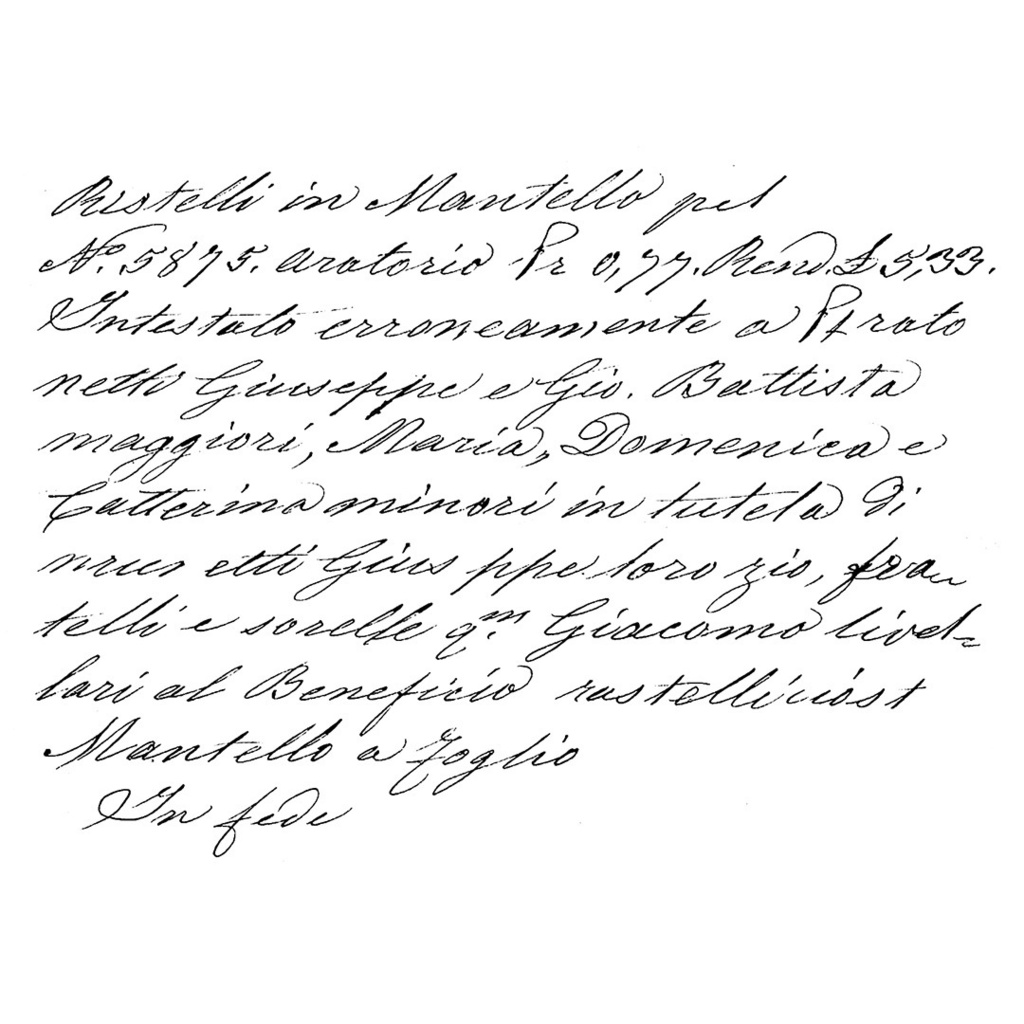 Ristelli in Mantello pel
N.º 5875. aratorio Pr 0,77. Rend. £ 5,33.
Intestato erroneamente a
netti Giuseppe e Gio. Battista
maggiori, Maria, Domenica e
Catterina minori in tutela di
etti Gius ppe loro zio, fra
telli e sorelle qm. Giacomo livel=
lari al Beneficio rastelli
Mantello a Foglio
In fede